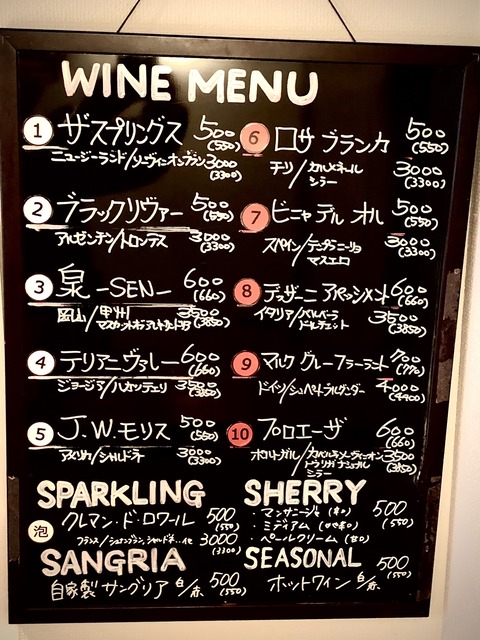 WINE MENU
1 ザ スプリングス 500 (550)
ニュージーランド/ソーヴィニオンブラン 3000 (3300)
2 ブラックリヴァー 500 (550)
アルゼンチン/トロンテス 3000 (3300)
3 泉 -SEN- 600 (660)
岡山/甲州 3500 (3850)
マスカットオブアレキサンドリア
4 テリアニヴァレー 600 (660)
ジョージア/ルカツテリ 3500 (3850)
5 J.W.モリス 500 (550)
アメリカ/シャルドネ 3000 (3300)
6 ロサ ブランカ 500 (550)
チリ/カルメネール 3000 (3300)
シラー
7 ビニャ デル オル 500 (550)
スペイン/テンプラニーリョ 3000 (3300)
マスエロ
8 600 (660)
イタリア/バルベーラ 3500 (3850)
ドルチェット
9 マルク グレーフラーラント 700 (770)
ドイツ/シュペートブルグンダー 4000 (4400)
10 プロエーザ 600 (660)
ポルトガル/カベルネソーヴィニオン 3500 (3850)
トウリガナショナル
シラー
SPARKLING
泡 クレマン・ド・ロワール 500 (550)
フランス/シュナンブラン, シャルドネ…他 3000 (3300)
SANGRIA
自家製 サングリア 白/赤 500 (550)
SHERRY
・マンサニージャ (辛口) 500 (550)
・ミディアム (やや辛口)
・ペールクリーム (甘口)
SEASONAL 500 (550)
ホットワイン 白/赤